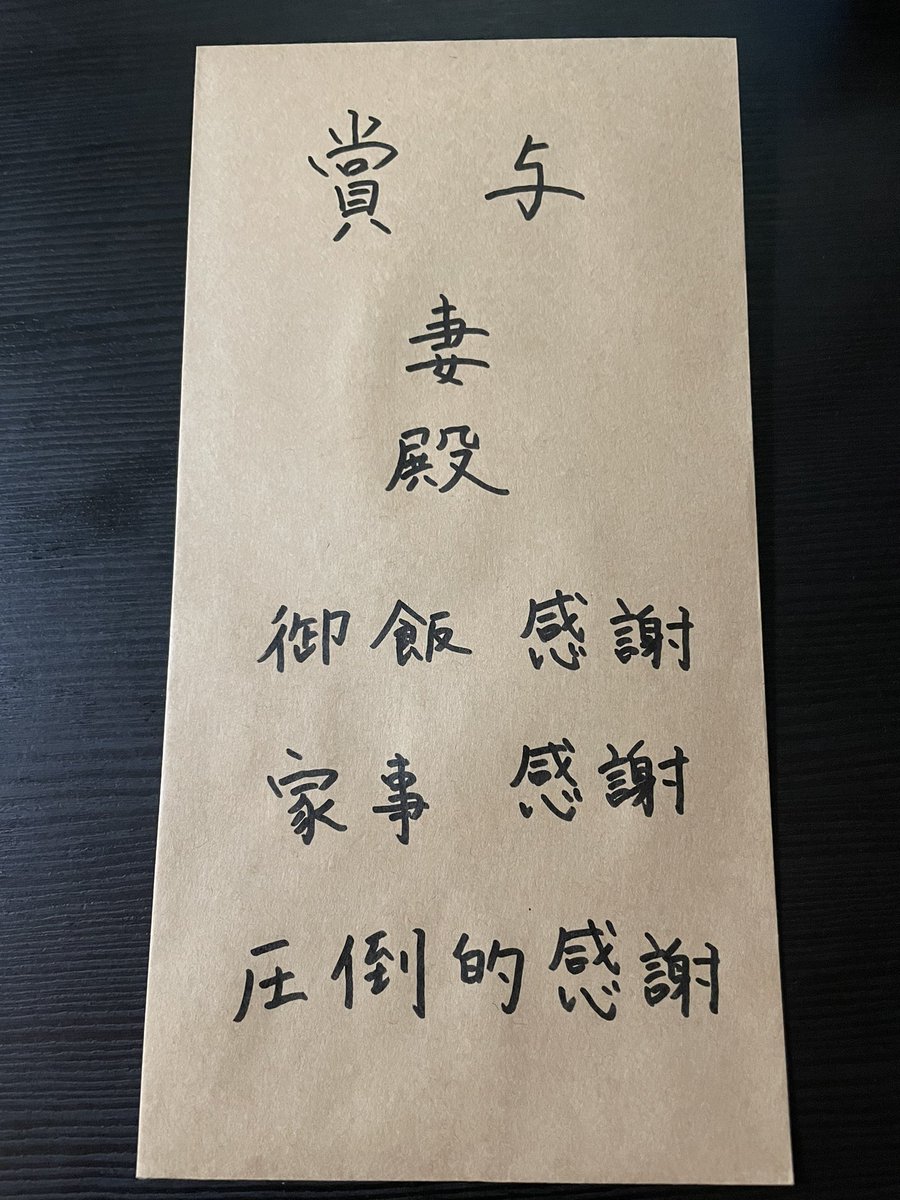 賞与
妻
殿
御飯 感謝
家事 感謝
圧倒的感謝